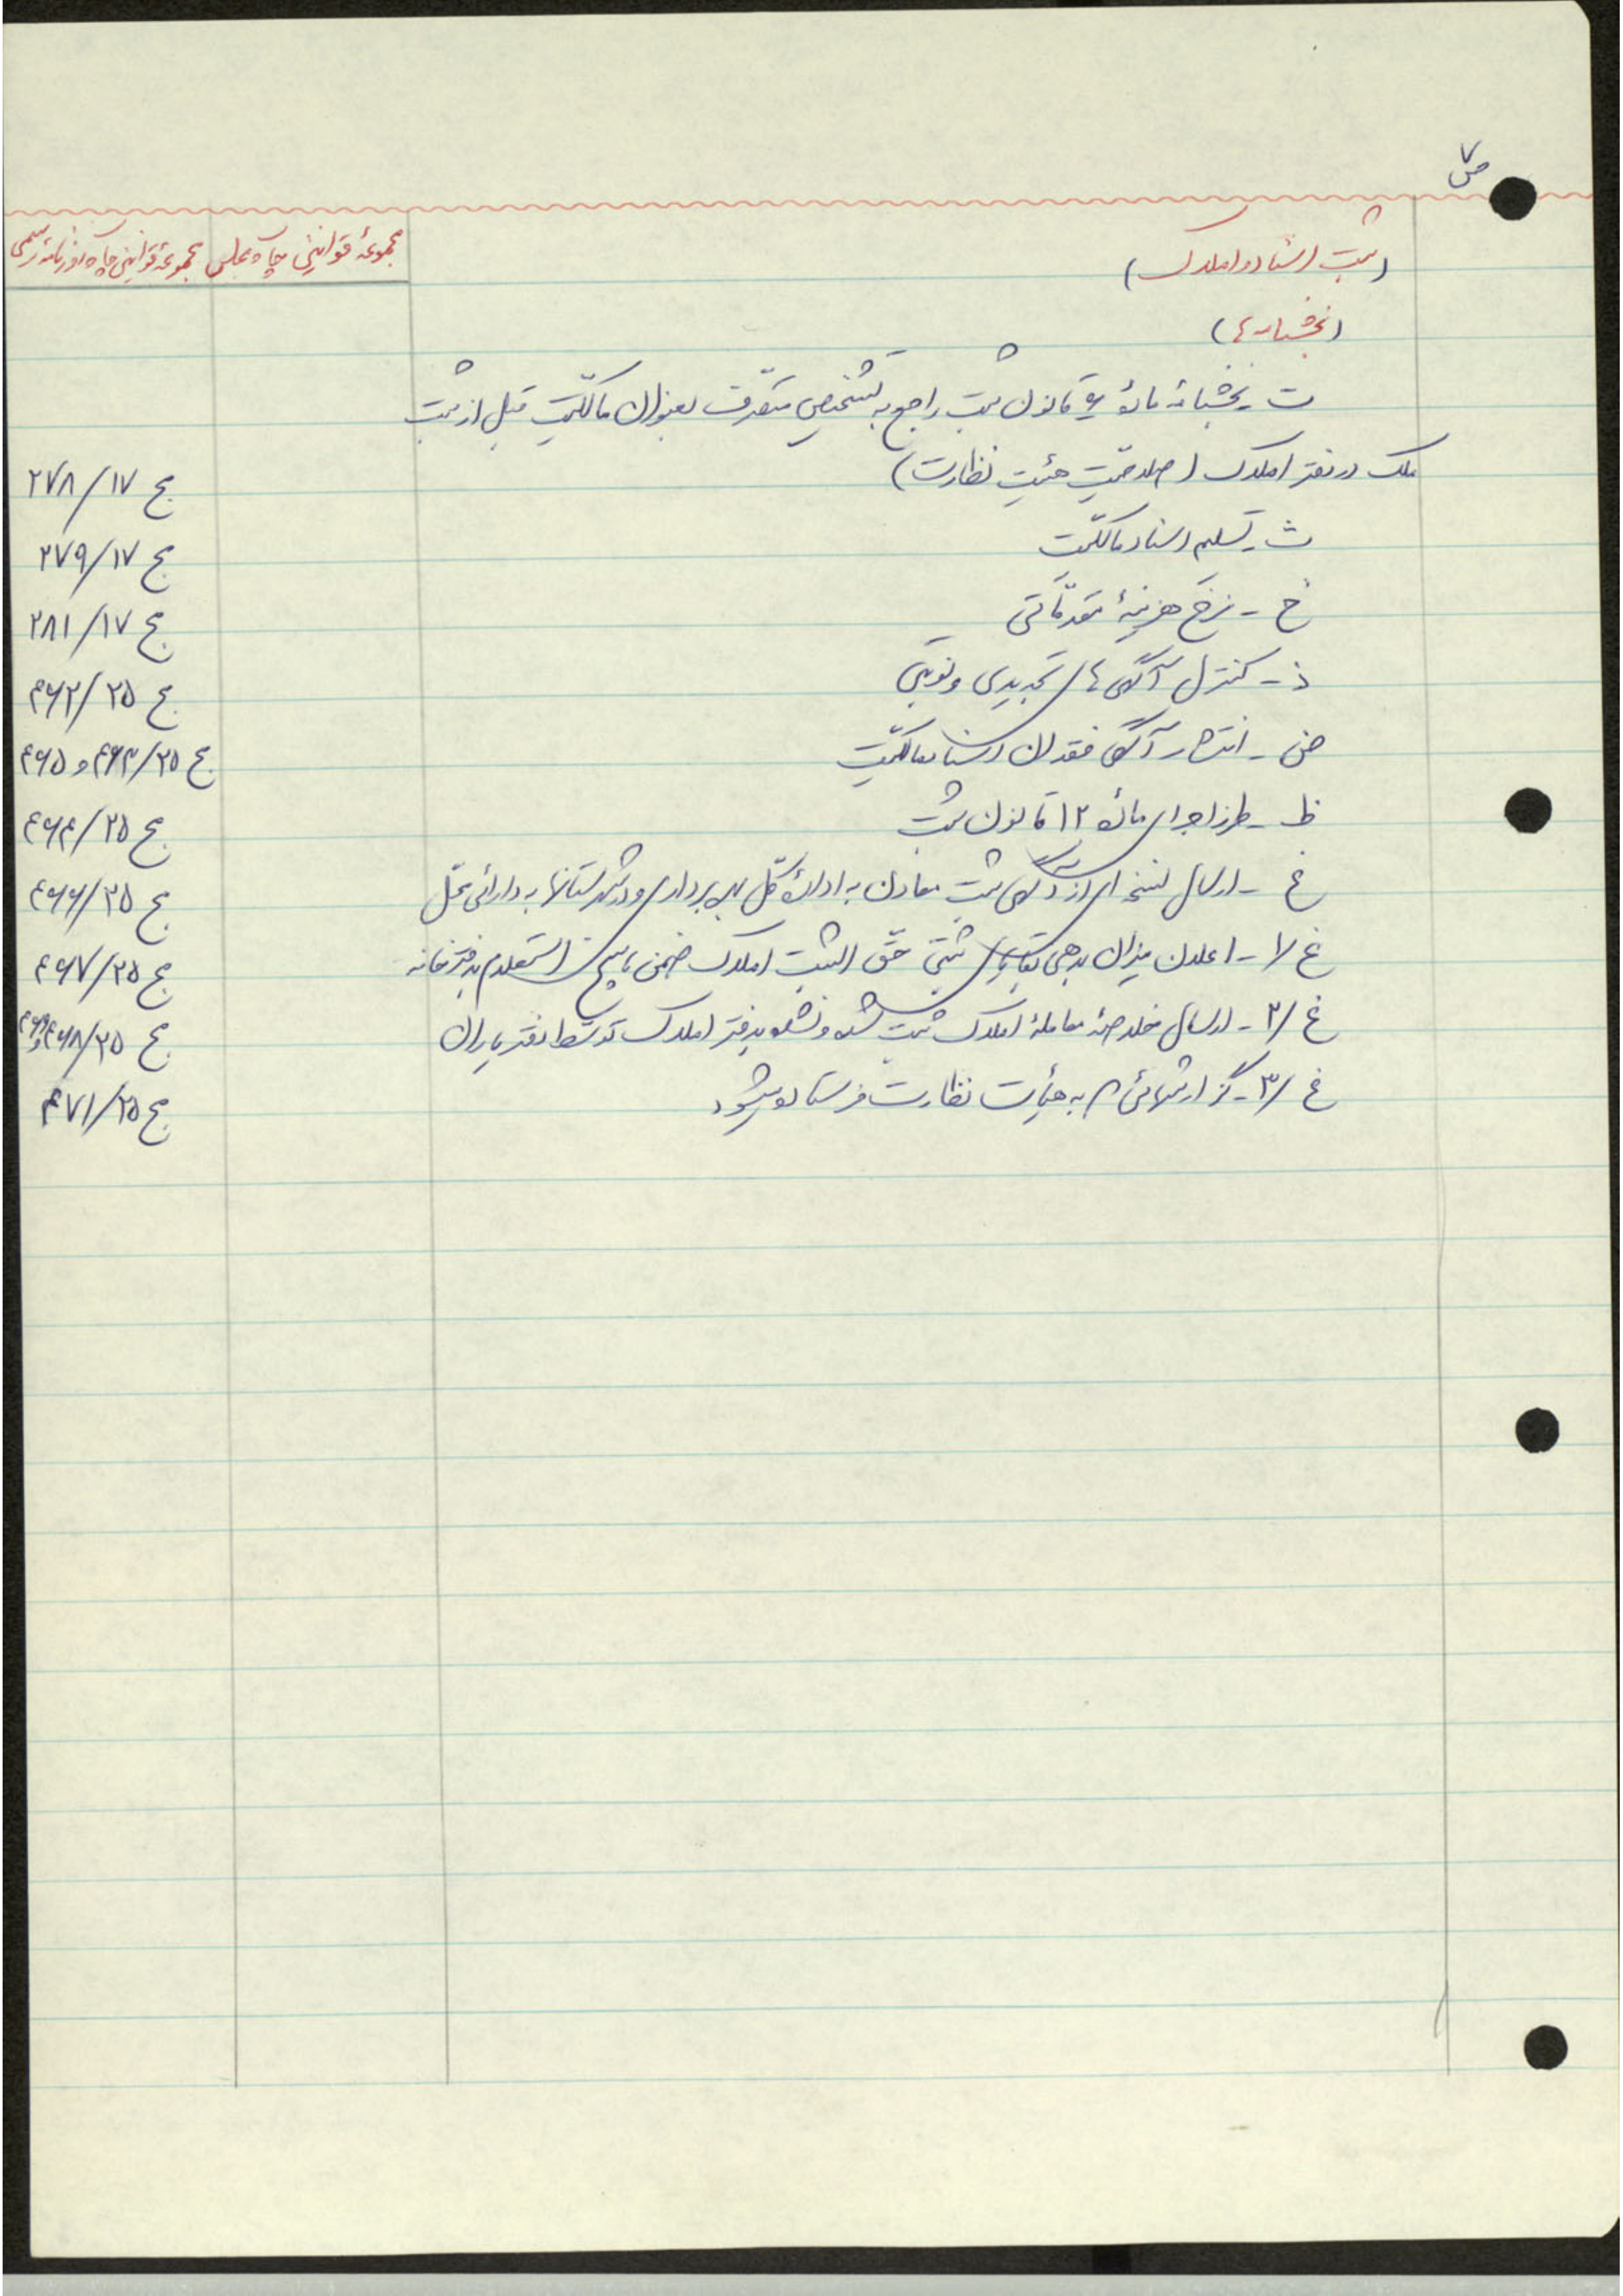 ص ۷
(ثبت اسناد و املاک) مجموعۀ قوانین چاپ مجلس مجموعۀ قوانین چاپ روزنامه رسمی
(بخشنامه ها)
ت - بخشنامه مادۀ ۶ قانون ثبت راجع به تشخیص متصرف بعنوان مالکیت قبل از ثبت
ملک در دفتر املاک (صلاحیت هیئت نظارت) ج ۱۷/۲۷۸
ث - تسلیم اسناد مالکیت ج ۱۷/۲۷۹
خ - نرخ هزینۀ مقدماتی ج ۱۷/۲۸۱
ذ - کنترل آگهی های تجدیدی و نوبتی ج ۲۵/۴۶۲
ض - انتشار آگهی فقدان اسناد مالکیت ج ۲۵/۴۶۳ و ۴۶۵
ظ - طرز اجرای مادۀ ۱۲ قانون ثبت ج ۲۵/۴۶۴
غ - ارسال نسخه ای از آگهی ثبت معادن به ادارۀ کل بهره برداری و در شهرستانها به دارائی محل ج ۲۵/۴۶۶
غ /۱ - اعلان میزان بدهی بقایای ثبتی حق الثبت املاک ضمن پاسخ استعلام بدفترخانه ج ۲۵/۴۶۷
غ /۲ - ارسال خلاصۀ معاملۀ املاک ثبت شده و نشده بدفتر املاک توسط دفتریاران ج ۲۵/۴۶۸ و ۴۶۹
غ /۳ - گزارشهائی که به هیأت نظارت فرستاده میشود ج ۲۵/۴۷۱